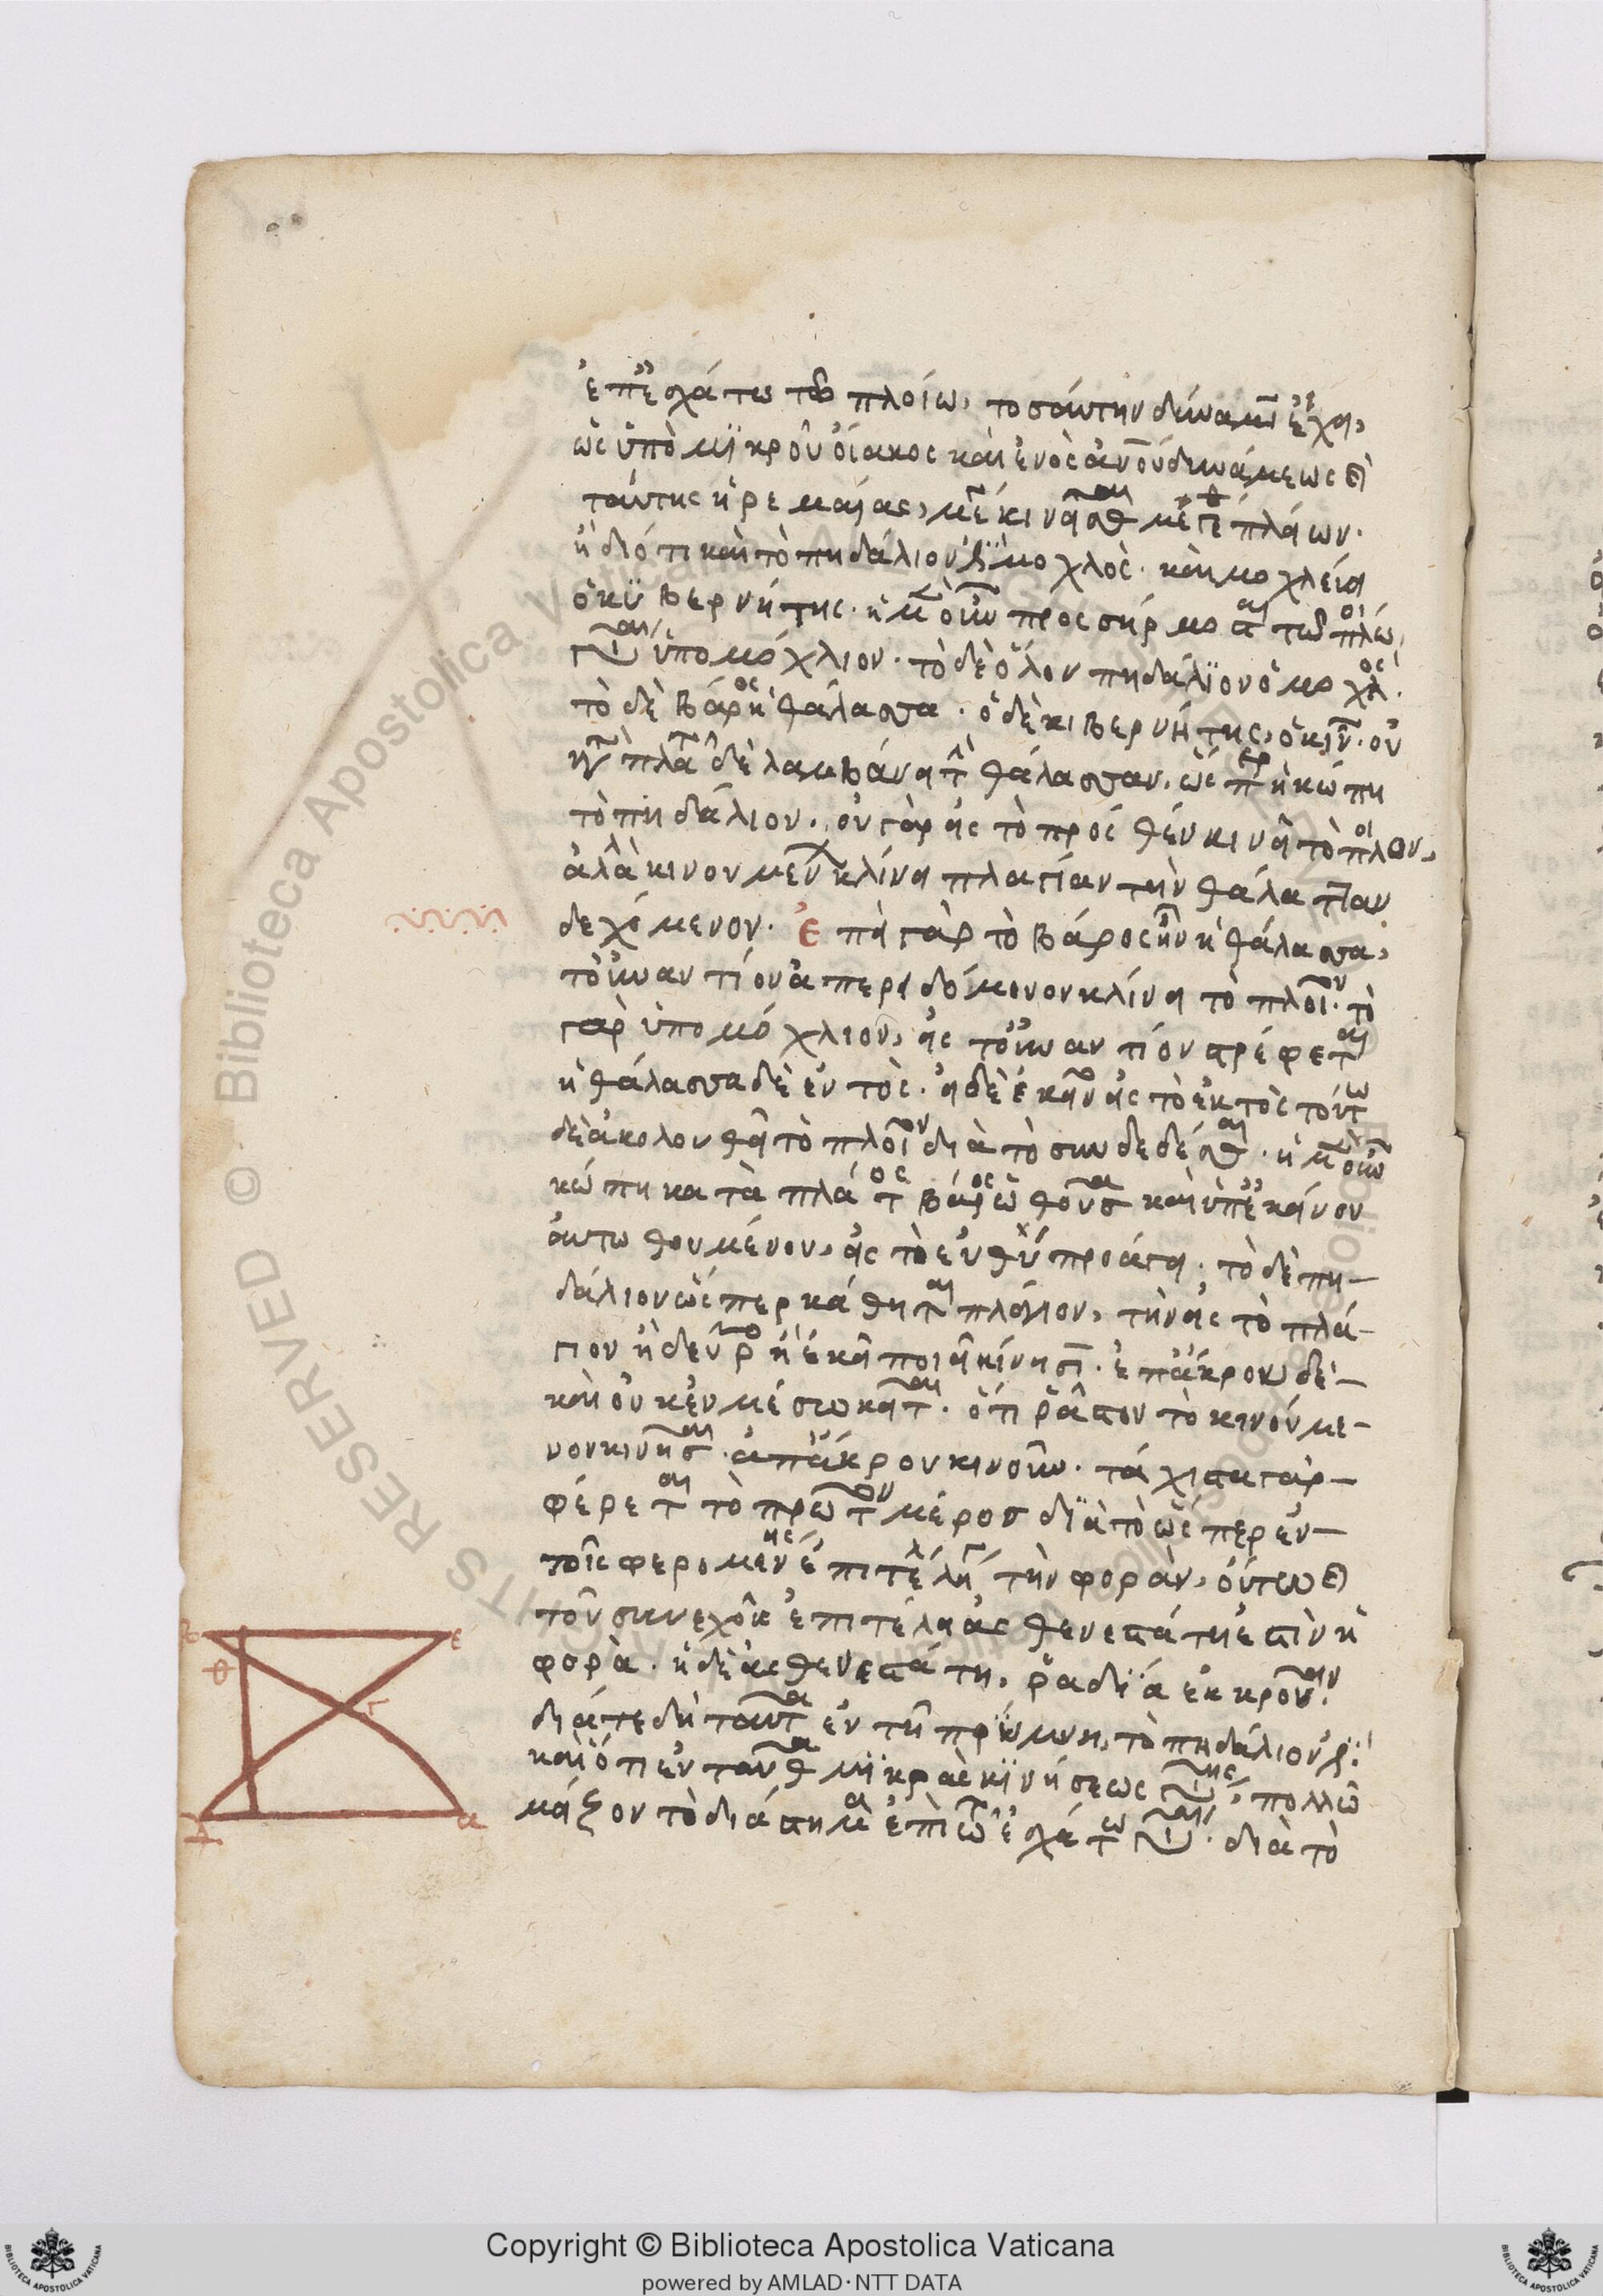 ἐπ' ἐσχάτω τῶ πλοίω, τοσαύτην δύναμιν ἔχει,
ὡς ὑπὸ μικροῦ οἴακος καὶ ἑνὸς ἀνου δυνάμεως
ταύτης ἠρεμαίας, μεγ κινεῖσθαι μεγέθ πλοίων.
ἢ διότι καὶ τὸ πηδάλιόν ἐστι μοχλός. καὶ μοχλεύει
ὁ κυβερνήτης. ἧ μὲν οὖν προσήρμοσται τῶ πλοίω,
γίνεται ὑπομόχλιον. τὸ δὲ ὅλον πηδάλιον ὁ μοχλός.
τὸ δὲ βάρος ἡ θάλασσα. ὁ δὲ κυβερνήτης, ὁ κινῶν. οὐ
κατὰ πλάτος δὲ λαμβάνει τὴν θάλασσαν, ὥσπερ ἡ κώπη
τὸ πηδάλιον. οὐ γὰρ εἰς τὸ πρόσθεν κινεῖ τὸ πλοῖον,
ἀλλὰ κινούμενον κλίνει πλαγίαν τὴν θάλατταν
δεχόμενον. Ἐπεὶ γὰρ τὸ βάρος ἦν ἡ θάλασσα,
τοὐναντίον ἀπερειδόμενον κλίνει τὸ πλοῖον. τὸ
γὰρ ὑπομόχλιον, εἰς τοὐναντίον στρέφεται
ἡ θάλασσα δὲ ἐντός. εἰ δὲ ἐκεῖνο εἰς τὸ ἐκτὸς τούτω
δὲ ἀκολουθεῖ τὸ πλοῖον διὰ τὸ συνδεδέσθαι. ἡ μὲν οὖν
κώπη κατὰ πλάτος τὸ βάρος ὠθοῦσα καὶ ὑπ' ἐκείνου
ἀντωθουμένου, εἰς τὸ εὐθὺ προάγει. τὸ δὲ πη-
δάλιον ὥσπερ κάθηται πλάγιον, τὴν εἰς τὸ πλά-
γιον ἢ δεῦρο ἢ ἐκεῖ ποιεῖ κίνησιν. ἐπ' ἄκρου δὲ-
καὶ οὐκ ἐν μέσω κεῖται. ὅτι ῥᾷστον τὸ κινούμε-
νον κινῆσαι ἀπ' ἄκρου κινοῦν. τάχιστα γὰρ-
φέρεται τὸ πρῶτον μέρος διὰ τὸ ὥσπερ ἐν-
τοῖς φερομένοις ἐπὶ τέλει λήγειν τὴν φορὰν, οὕτω καὶ
τοῦ συνεχοῦς ἐπὶ τέλει ἀσθενεστάτη ἐστὶν ἡ
φορὰ. ἡ δὲ ἀσθενεστάτη, ῥαδία ἐκκρούειν.
διά τε δὴ ταῦτα ἐν τῆ πρύμνη, τὸ πηδάλιόν ἐστι
καὶ ὅτι ἐνταῦθα μικρᾶς κινήσεως γινομένης, πολλῶ
μεῖζον τὸ διάστημα ἐπὶ τῶ ἐσχάτω γίνεται. διὰ τὸ